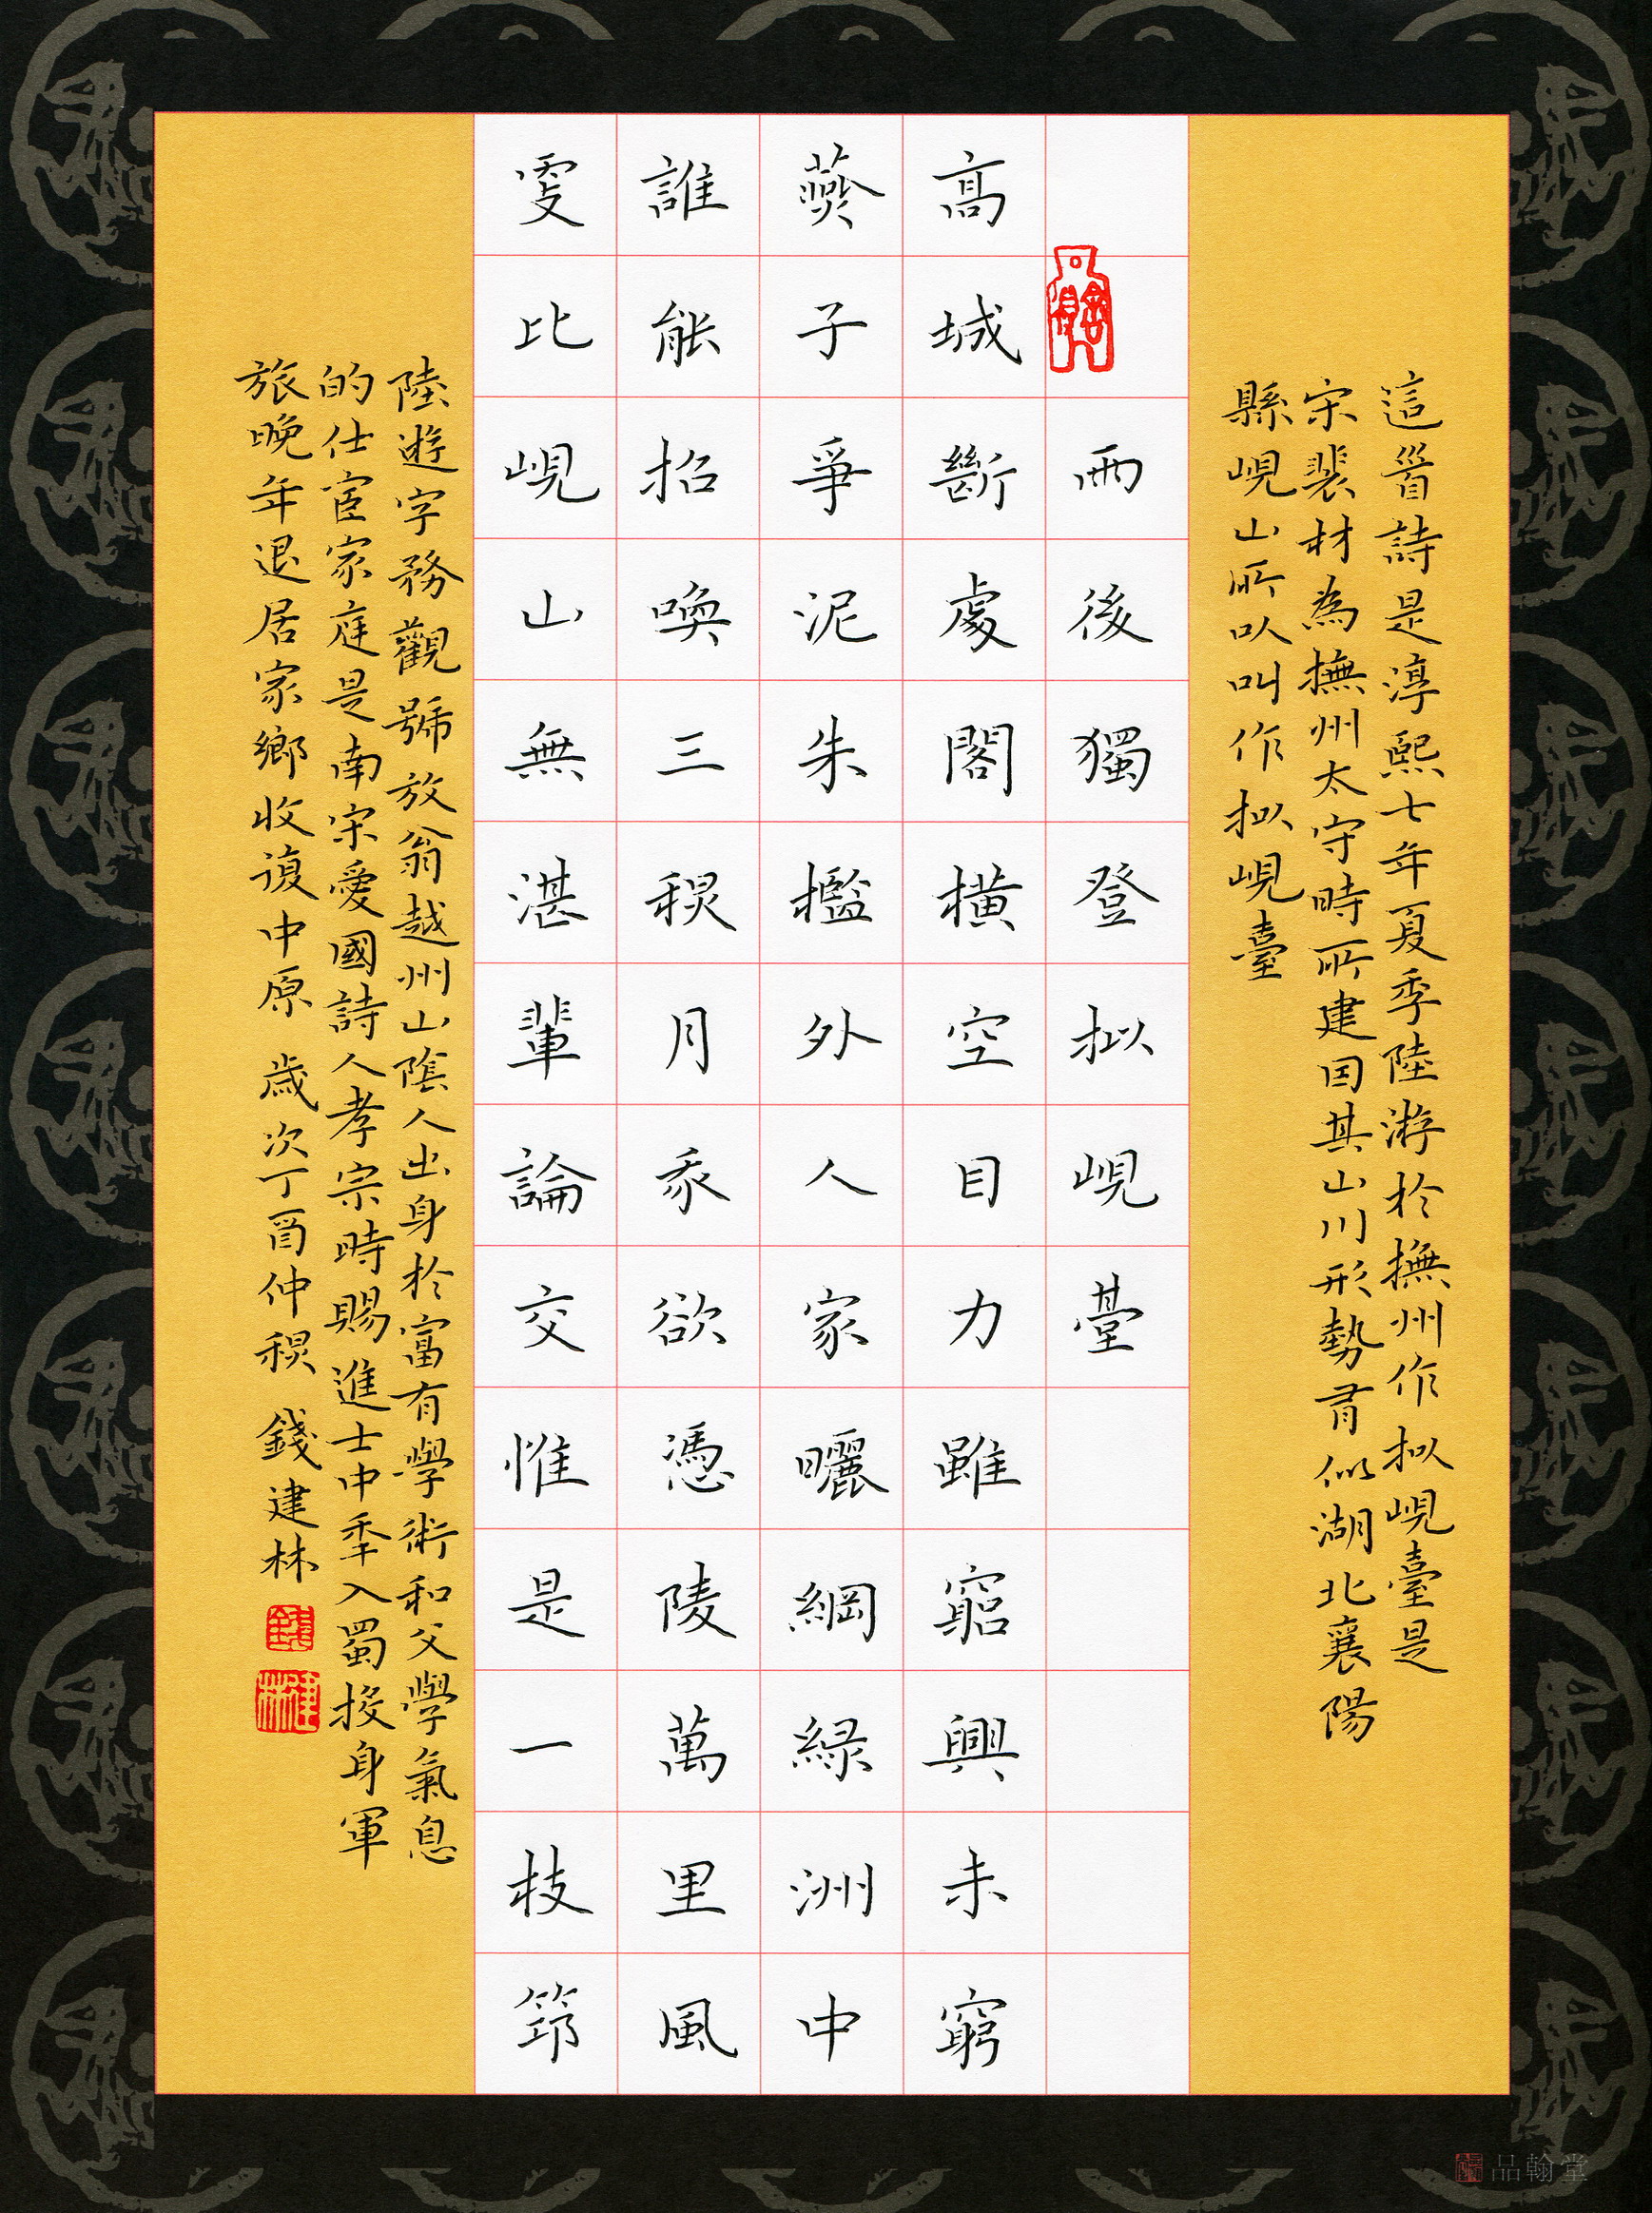 這首詩是淳熙七年夏季陸游於撫州作拟峴臺是
宋裴材為撫州太守時所建因其山川形勢有似湖北襄陽
縣峴山所以叫作拟峴臺
雨後獨登拟峴臺
高城斷處閣橫空目力雖窮興未窮
燕子爭泥朱檻外人家曬網綠洲中
誰能招喚三秋月我欲憑陵萬里風
更比峴山無湛輩論交惟是一枝筇
陸遊字務觀號放翁越州山陰人出身於富有學術和文學氣息
的仕宦家庭是南宋愛國詩人孝宗時賜進士中年入蜀投身軍
旅晚年退居家鄉收復中原 歲次丁酉仲秋 錢建林
錢
建林
品翰堂